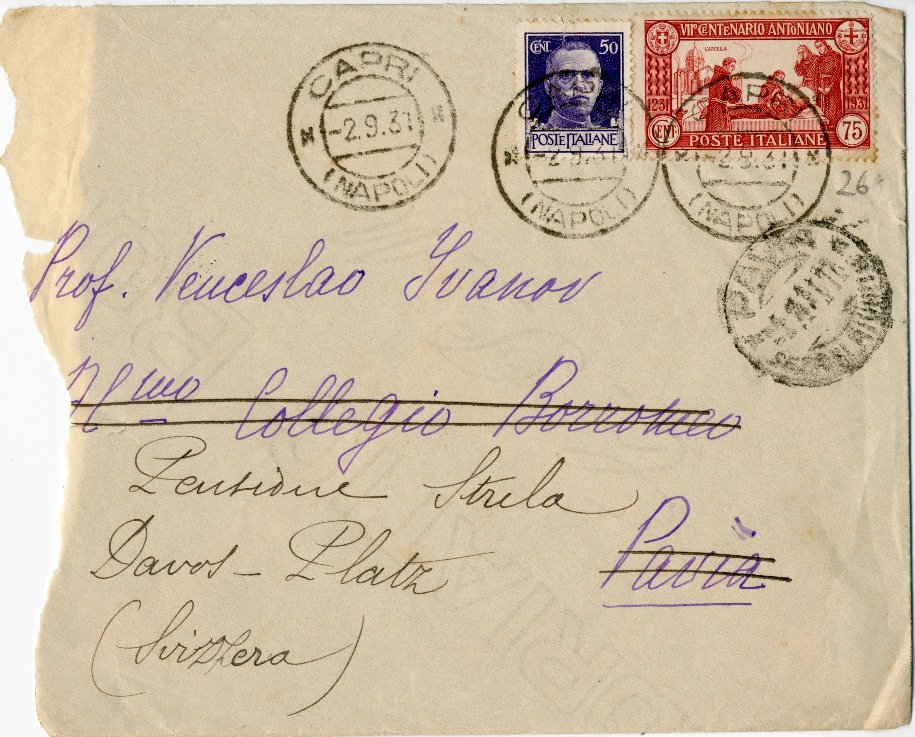 CENT. 50
POSTE ITALIANE
VIIº CENTENARIO ANTONIANO
1231 1931
CENT 75
POSTE ITALIANE
CAPRI
-2.9.31
(NAPOLI)
CAPRI
-2.9.31
(NAPOLI)
CAPRI
-2.9.31
(NAPOLI)
26
PAVIA
Prof. Venceslao Ivanov
Almo Collegio Borromeo
Pensione Strela
Pavia
Davos - Platz
(Svizzera)